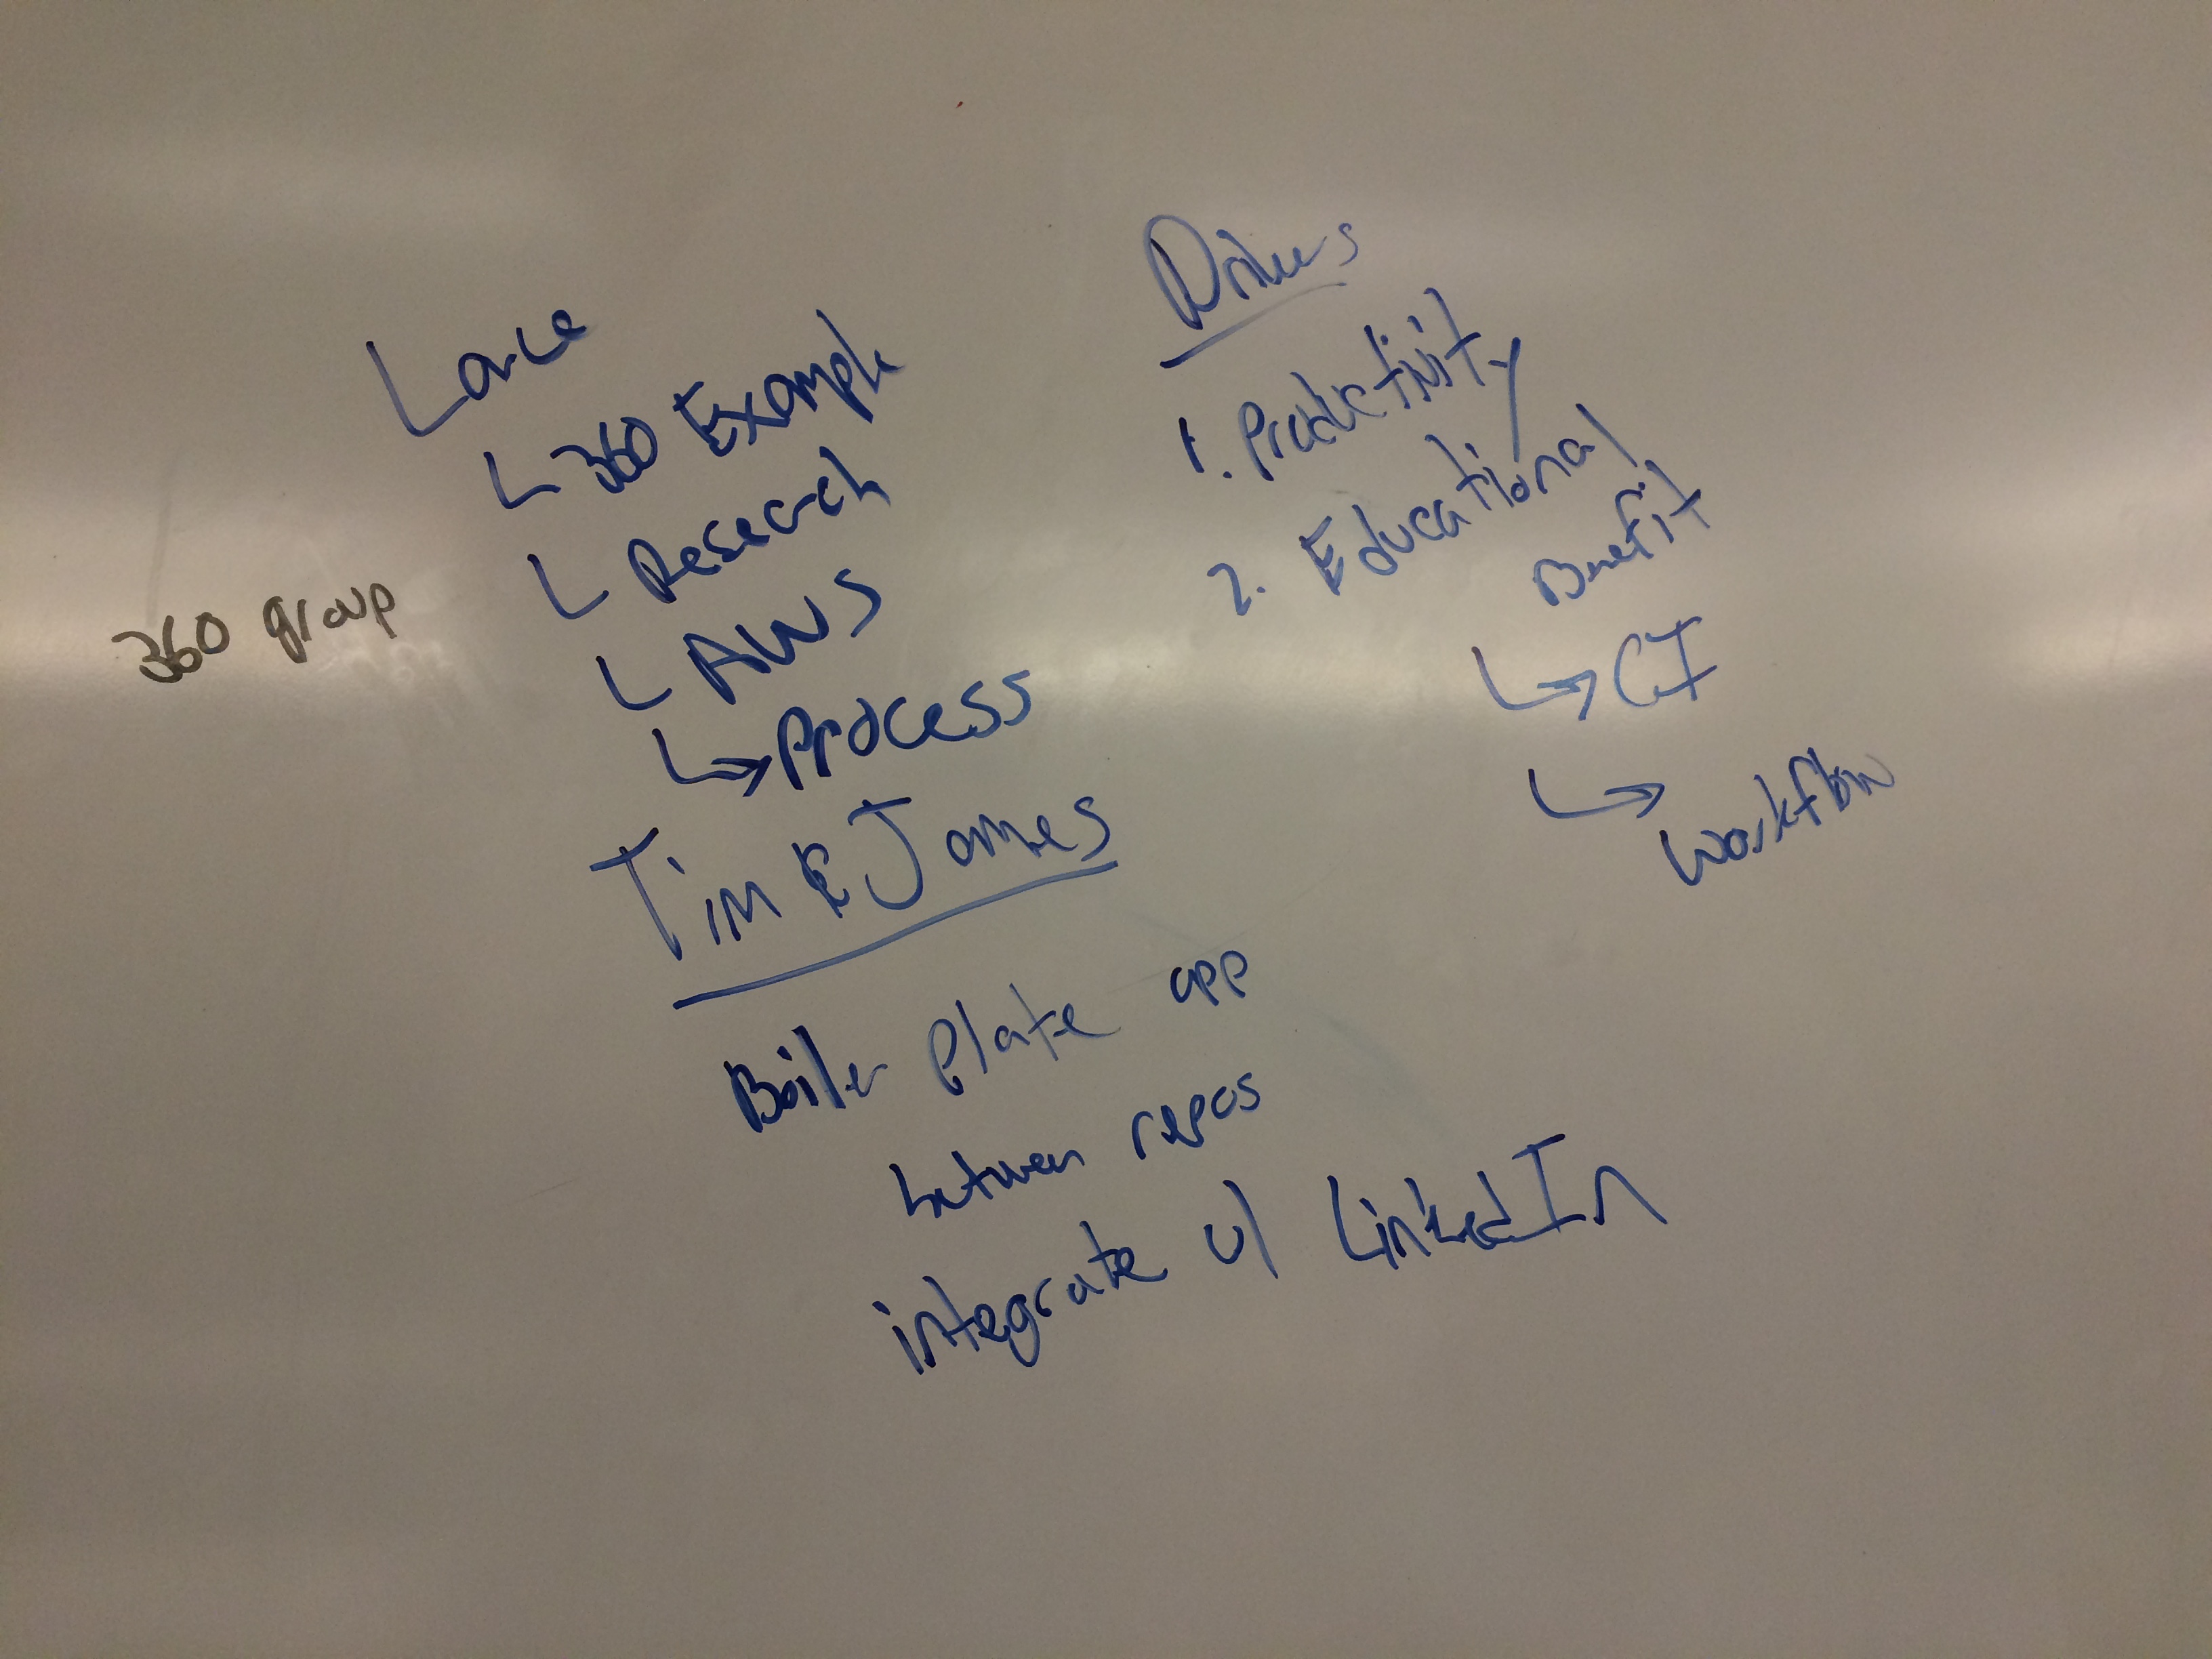 360 group
Lance
360 Example
Research
AWS
Process
Tim & James
Boiler Plate app
between repos
integrate w/ LinkedIn
Drivers
1. Productivity
2. Educational
Benefit
CI
Workflow